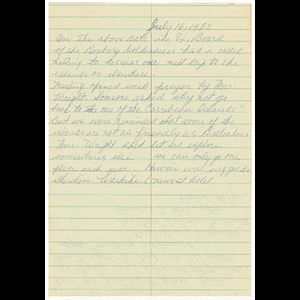 July 16, 19
On the above date the Ex. Board
of the Roxbury Goldenaires had a called
meeting to discuss our next trip to the
islands or elsewhere.
Meeting opened with prayer by Mr.
Wright. Someone asked "why not go
back to one of the Caribbean Islands"
But we were reminded that some of the
islands are not as friendly as Barbados
Mr. Wright said let us explore
somewhere else we can only go one
place each year. Hawaii was suggested
Sheraton Waikiki newest hotel